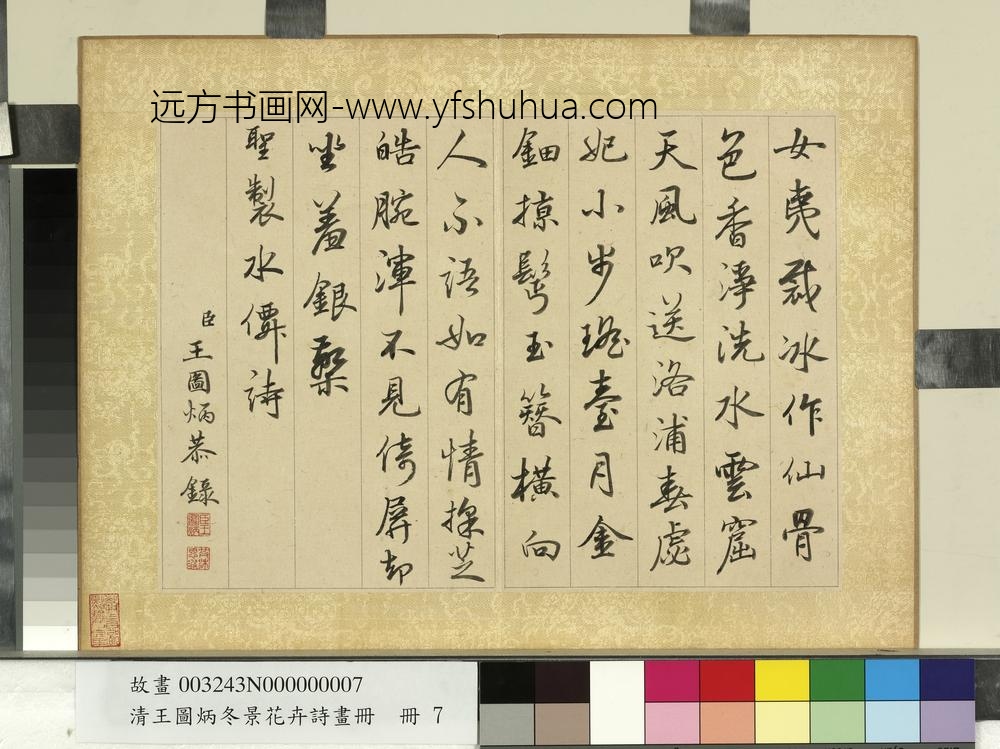 远方书画网-www.yfshuhua.com
女夷裁冰作仙骨
色香淨洗水雲窟
天風吹送洛浦春處
妃小步瑤臺月金
鈿掠鬢玉簪橫向
人不語如有情探芝
皓腕渾不見倚屏却
坐羞銀檠
聖製水僊詩
臣王圖炳恭錄
故畫 003243N000000007
清王圖炳冬景花卉詩畫冊 冊 7